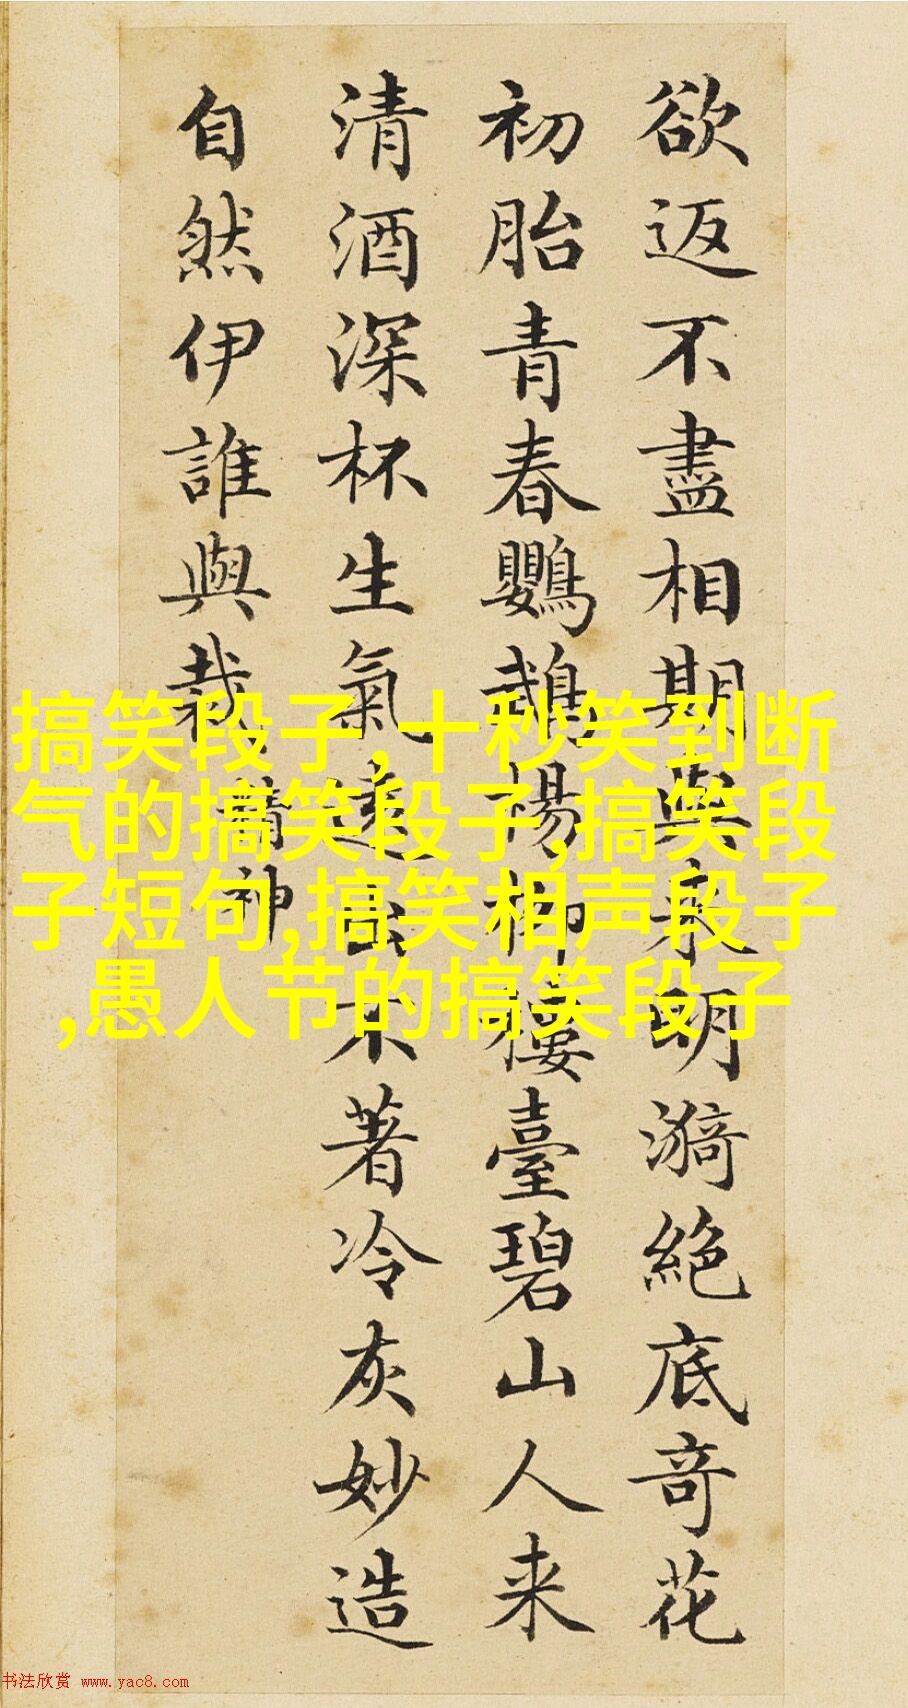 欲返不盡相期與来明漪絶底奇花
初胎青春鸚鵡楊柳樓臺碧山人来
清酒深杯生氣遠出不著冷灰妙造
自然伊誰與裁
精神
搞笑段子,十秒笑到断
气的搞笑段子,搞笑段
子短句,搞笑相声段子
,愚人节的搞笑段子
书法欣赏 www.yac8.com